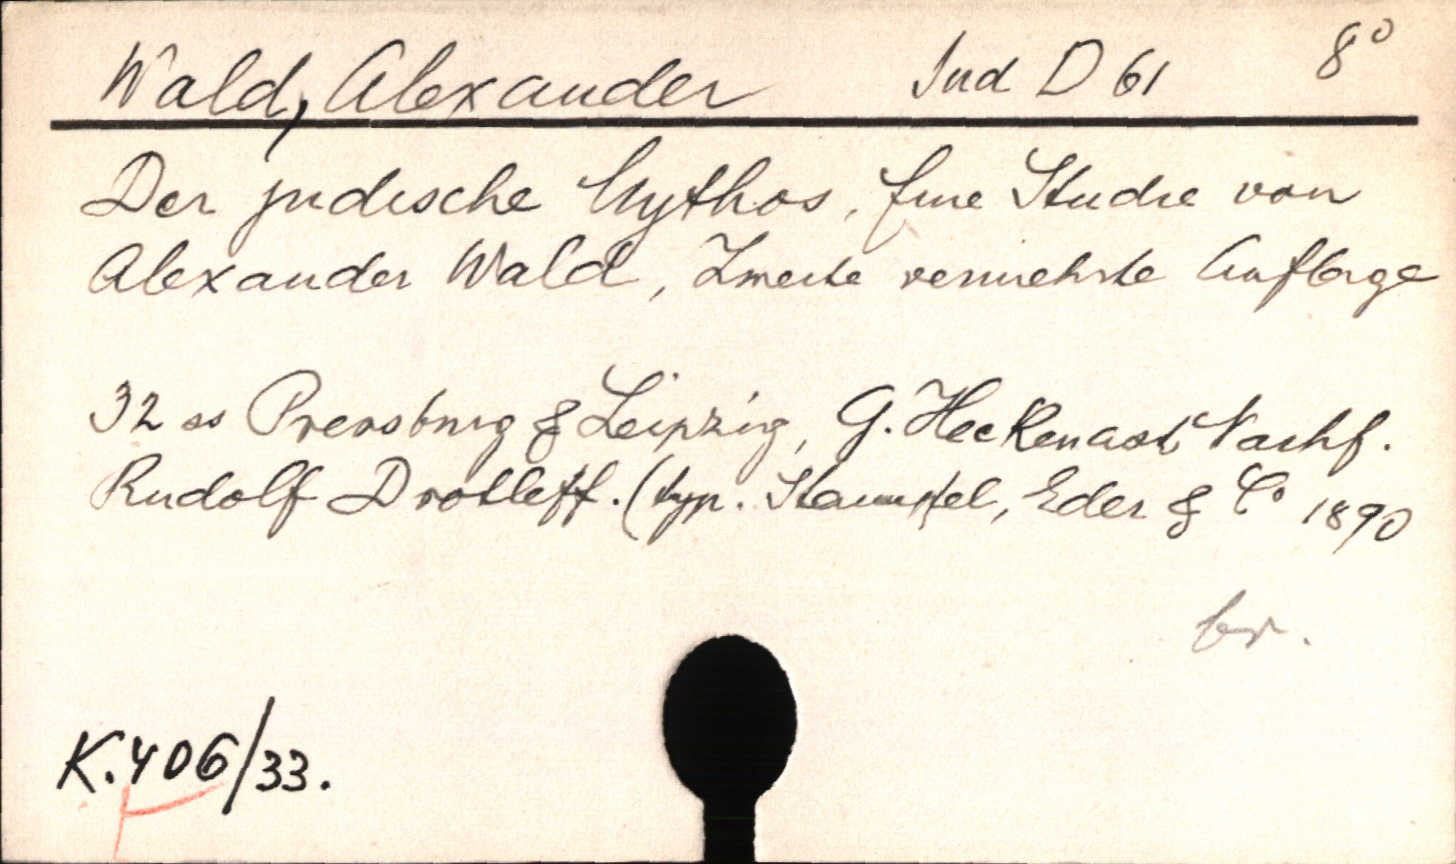 Wald, Alexander Jud D 61 8°
Der jüdische Mythos. Eine Studie von
Alexander Wald, Zweite vermehrte Auflage
32 ss Pressburg & Leipzig, G. Heckenast Nachf.
Rudolf Drotleff. (typ. Stampfel, Eder & C° 1890
br.
K.406/33.